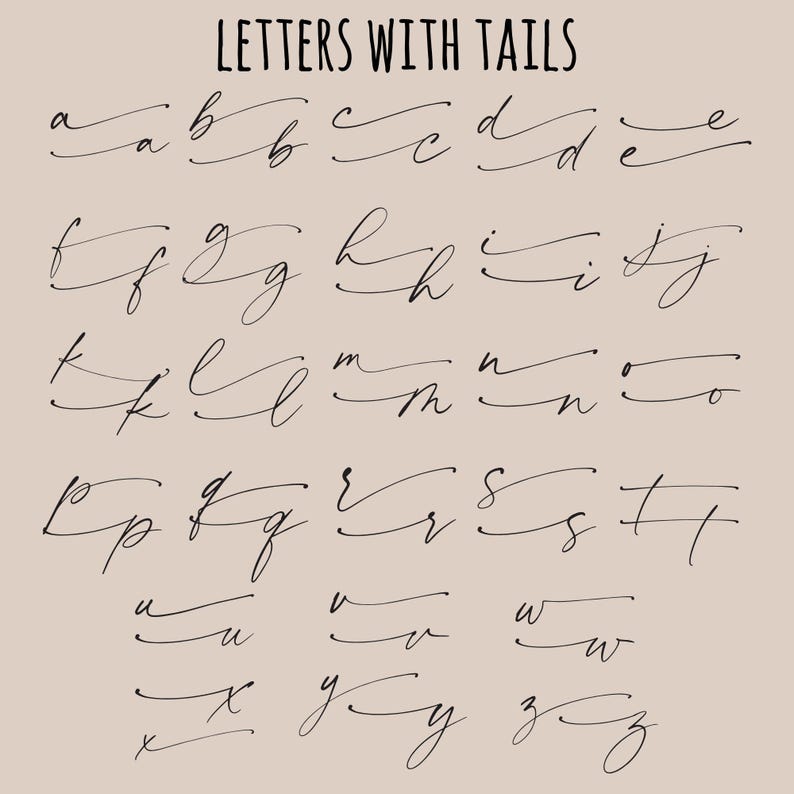 LETTERS WITH TAILS
a b c d e
a b c d e
f g h i j
f g h i j
k l m n o
k l m n o
p q r s t
p q r s t
u v w
u v w
x y z
x y z